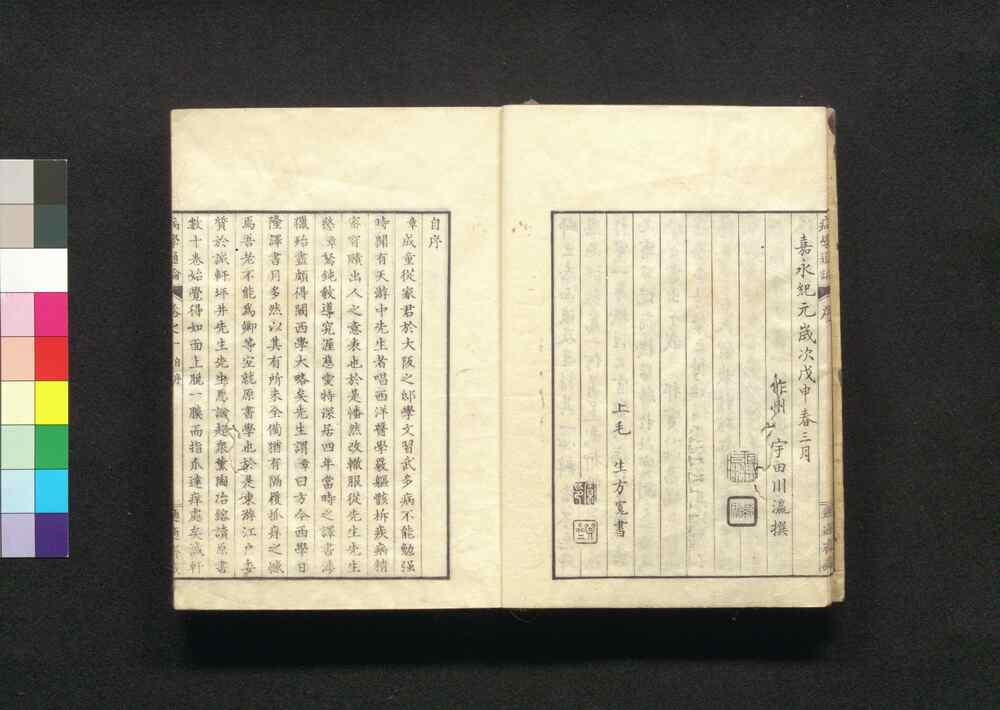 嘉永紀元歳次戊申春三月
作州 宇田川瀛撰
上毛 生方寛書
自序
章成童從家君於大阪之邸學文習武多病不能勉强
時聞有天游中先生者唱西洋醫學嚴軀骸析疾病精
密窮賾出人之意表也於是幡然改轍服從先生先生
愍章駑鈍敎導究涯慈愛特深居四年當時之譯書涉
獵殆盡頗得闚西學大略矣先生謂章曰方今西學日
隆譯書月多然以其有所未全備猶有隔履抓痒之憾
焉吾老不能爲卿等宜就原書學也於是東游江戶委
質於誠軒坪井先生先生恩諭超衆薰陶冶鎔讀原書
數十卷始覺得如面上脫一膜而指爪達痒處矣誠軒
病學通論 卷之一